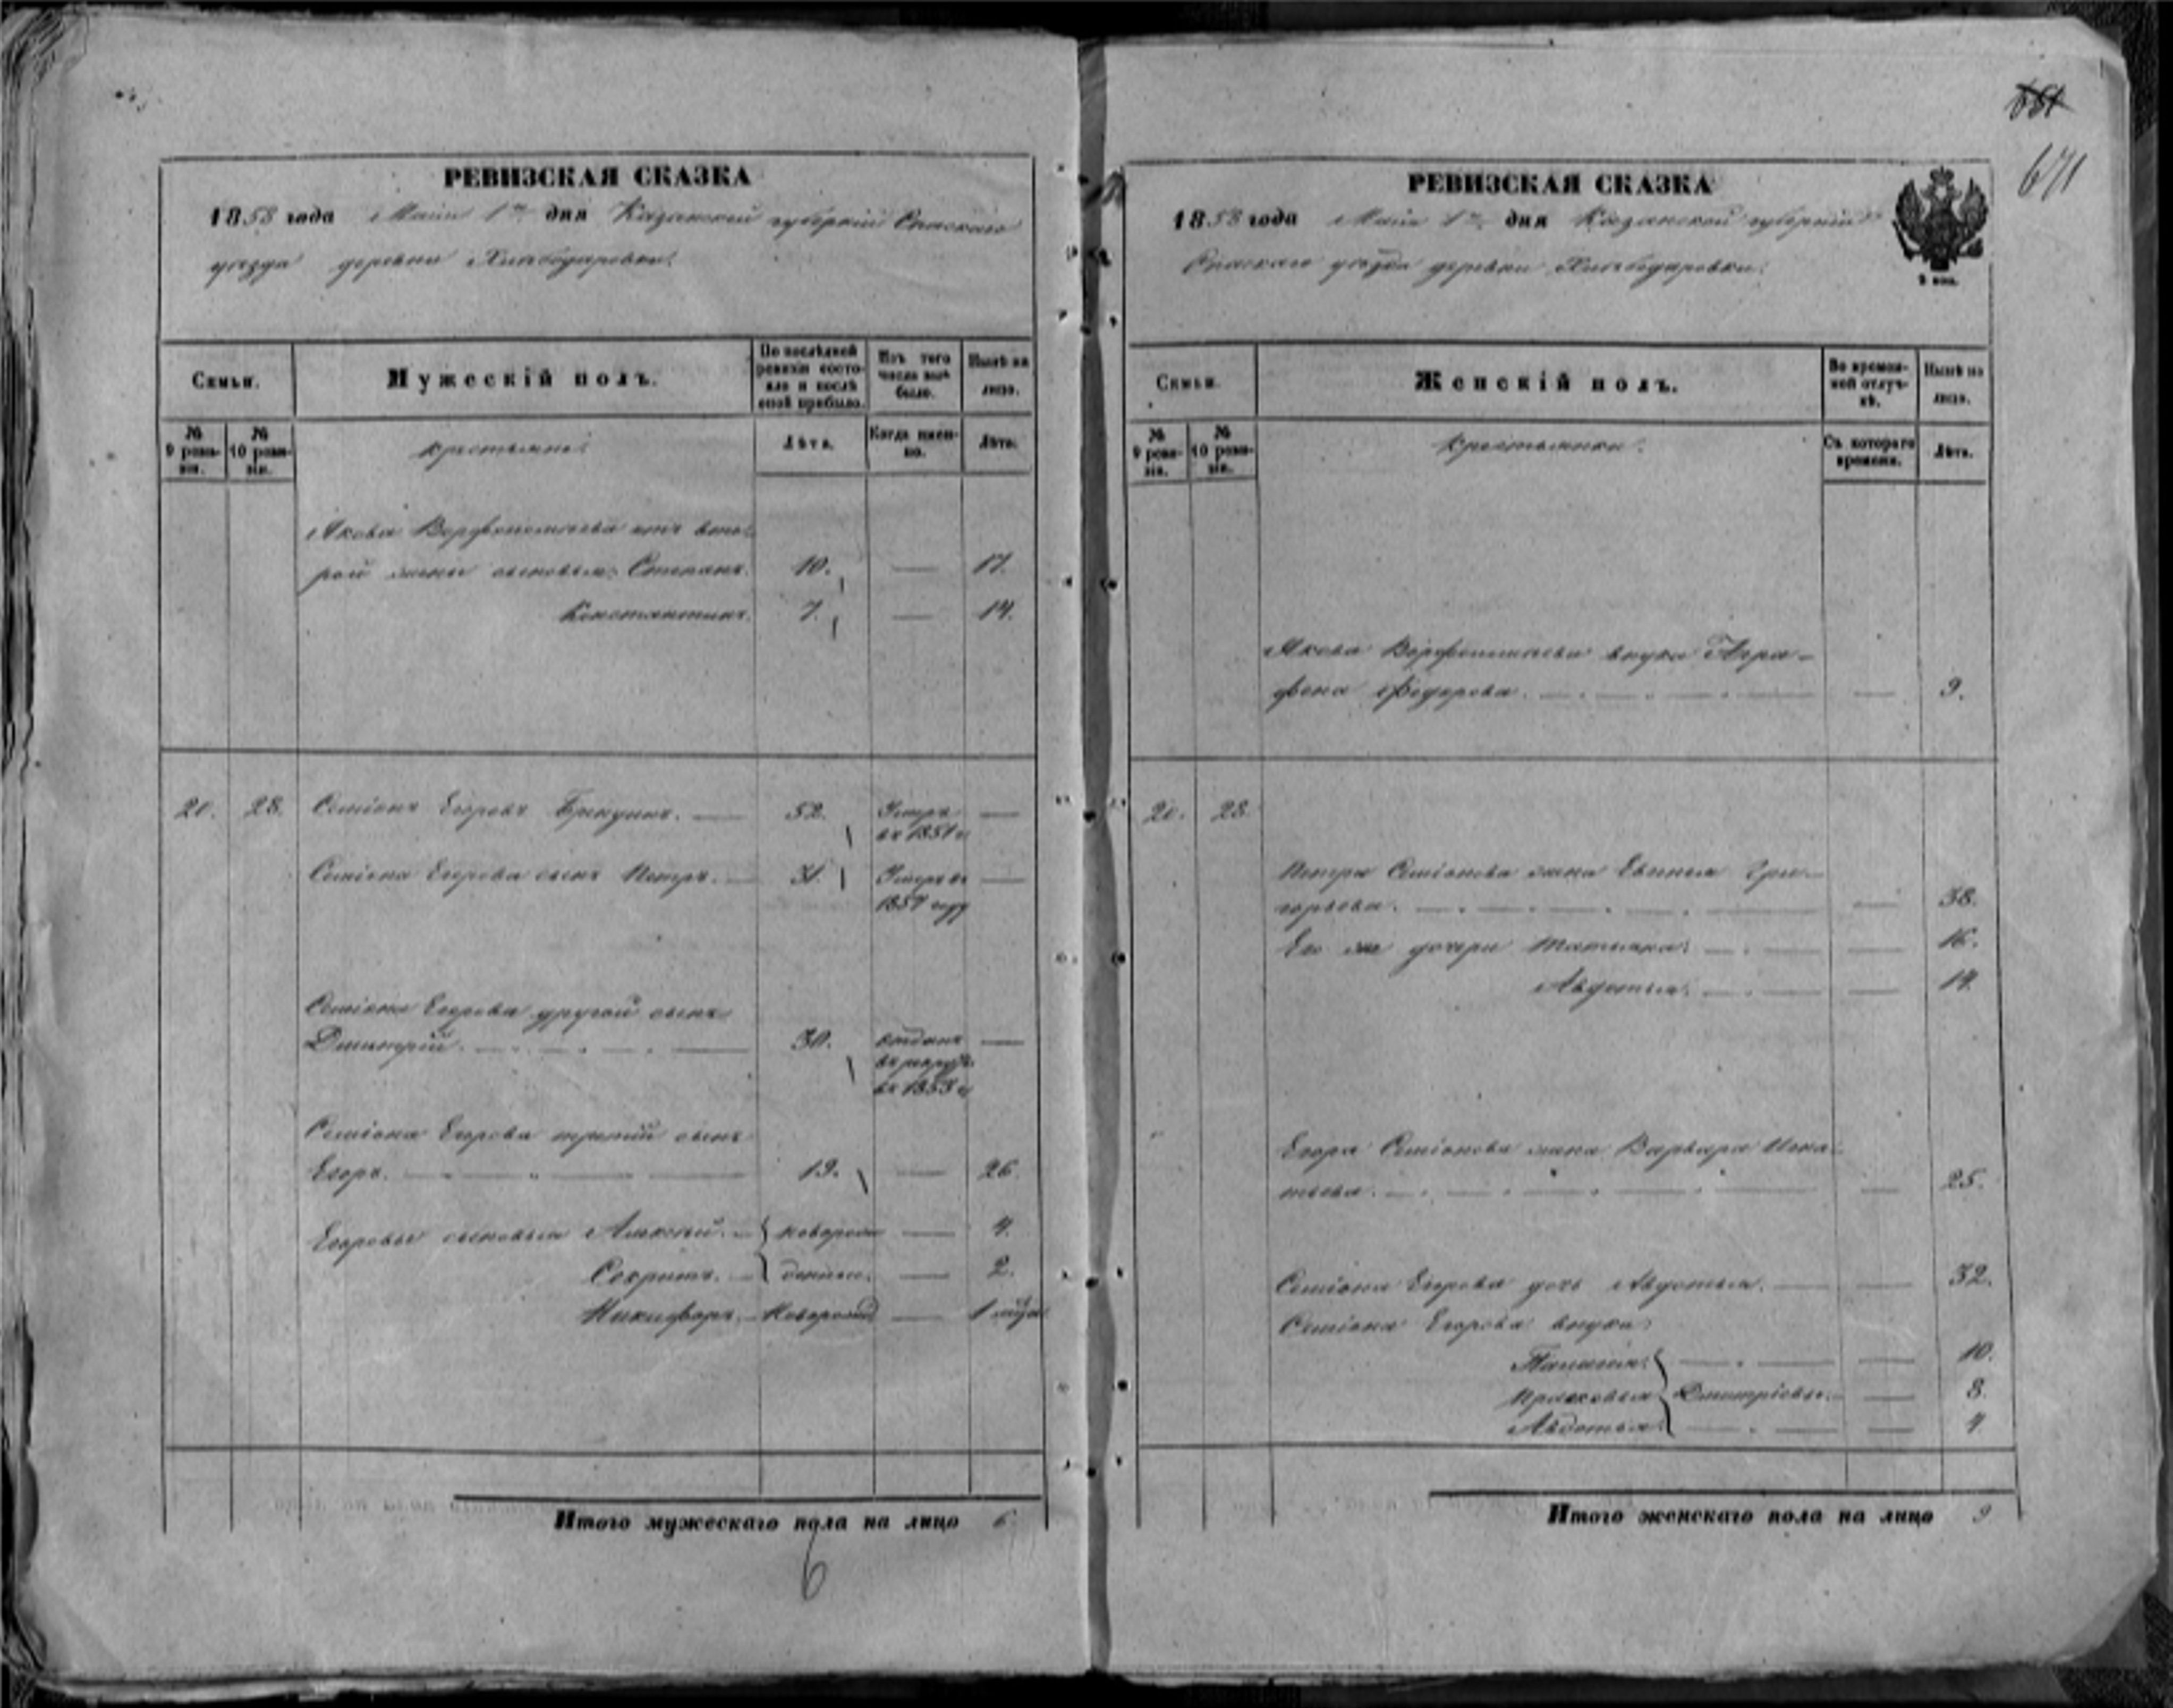 651
671
РЕВИЗСКАЯ СКАЗКА
1858 года Маія 1го дня Казанской губерніи Спаскаго
уезда деревни Хлебодаровки.
Семьи.
Мужескій полъ.
По послѣдней ревизіи состояло и послѣ оной прибыло.
Изъ того числа выбыло.
Нынѣ на лицо.
№ 9 ревизіи.
№ 10 ревизіи.
Крестьяне:
Лѣта.
Когда именно.
Лѣта.
Якова Ворфоломеева отъ вто-
рой жены сыновья: Степанъ. 10. — 17.
Константинъ. 7. — 14.
20. 28. Семіонъ Егоровъ 52. Умеръ —
въ 1851 г
Семіона Егорова сынъ Петръ. — 31. Умеръ въ —
1857 году
Семіона Егорова другой сынъ
Дмитрій. — 30. отданъ —
въ рекруты
въ 1853 г
Семіона Егорова третій сынъ
Егоръ. — 19. — 26.
Егоровы сыновья Алексей. — новорож — 4.
— денные. — 2.
Никифоръ. — Новорожд — 1 меся
Итого мужескаго пола на лицо 6
6
РЕВИЗСКАЯ СКАЗКА
1858 года Маія 1го дня Казанской губерніи
Спаскаго уезда деревни Хлебодаровки.
9 коп.
Семьи.
Женскій полъ.
Во временной отлучкѣ.
Нынѣ на лицо.
№ 9 ревизіи.
№ 10 ревизіи.
Крестьянки.
Съ котораго времени.
Лѣта.
Якова Ворфоломеева внука Агра-
фена Федорова. — 9.
20. 28.
Петра Семіонова жена Евгенья Гри-
горьева. — 38.
Его же дочери Татьяна. — 16.
Авдотья. — 14.
Егора Семіонова жена Варвара Игна-
тьева. — 25.
Семіона Егорова дочь Авдотья. — 32.
Семіона Егорова внуки
— 10.
Прасковья Дмитріевы. — 8.
Авдотья — 4
Итого женскаго пола на лицо 9